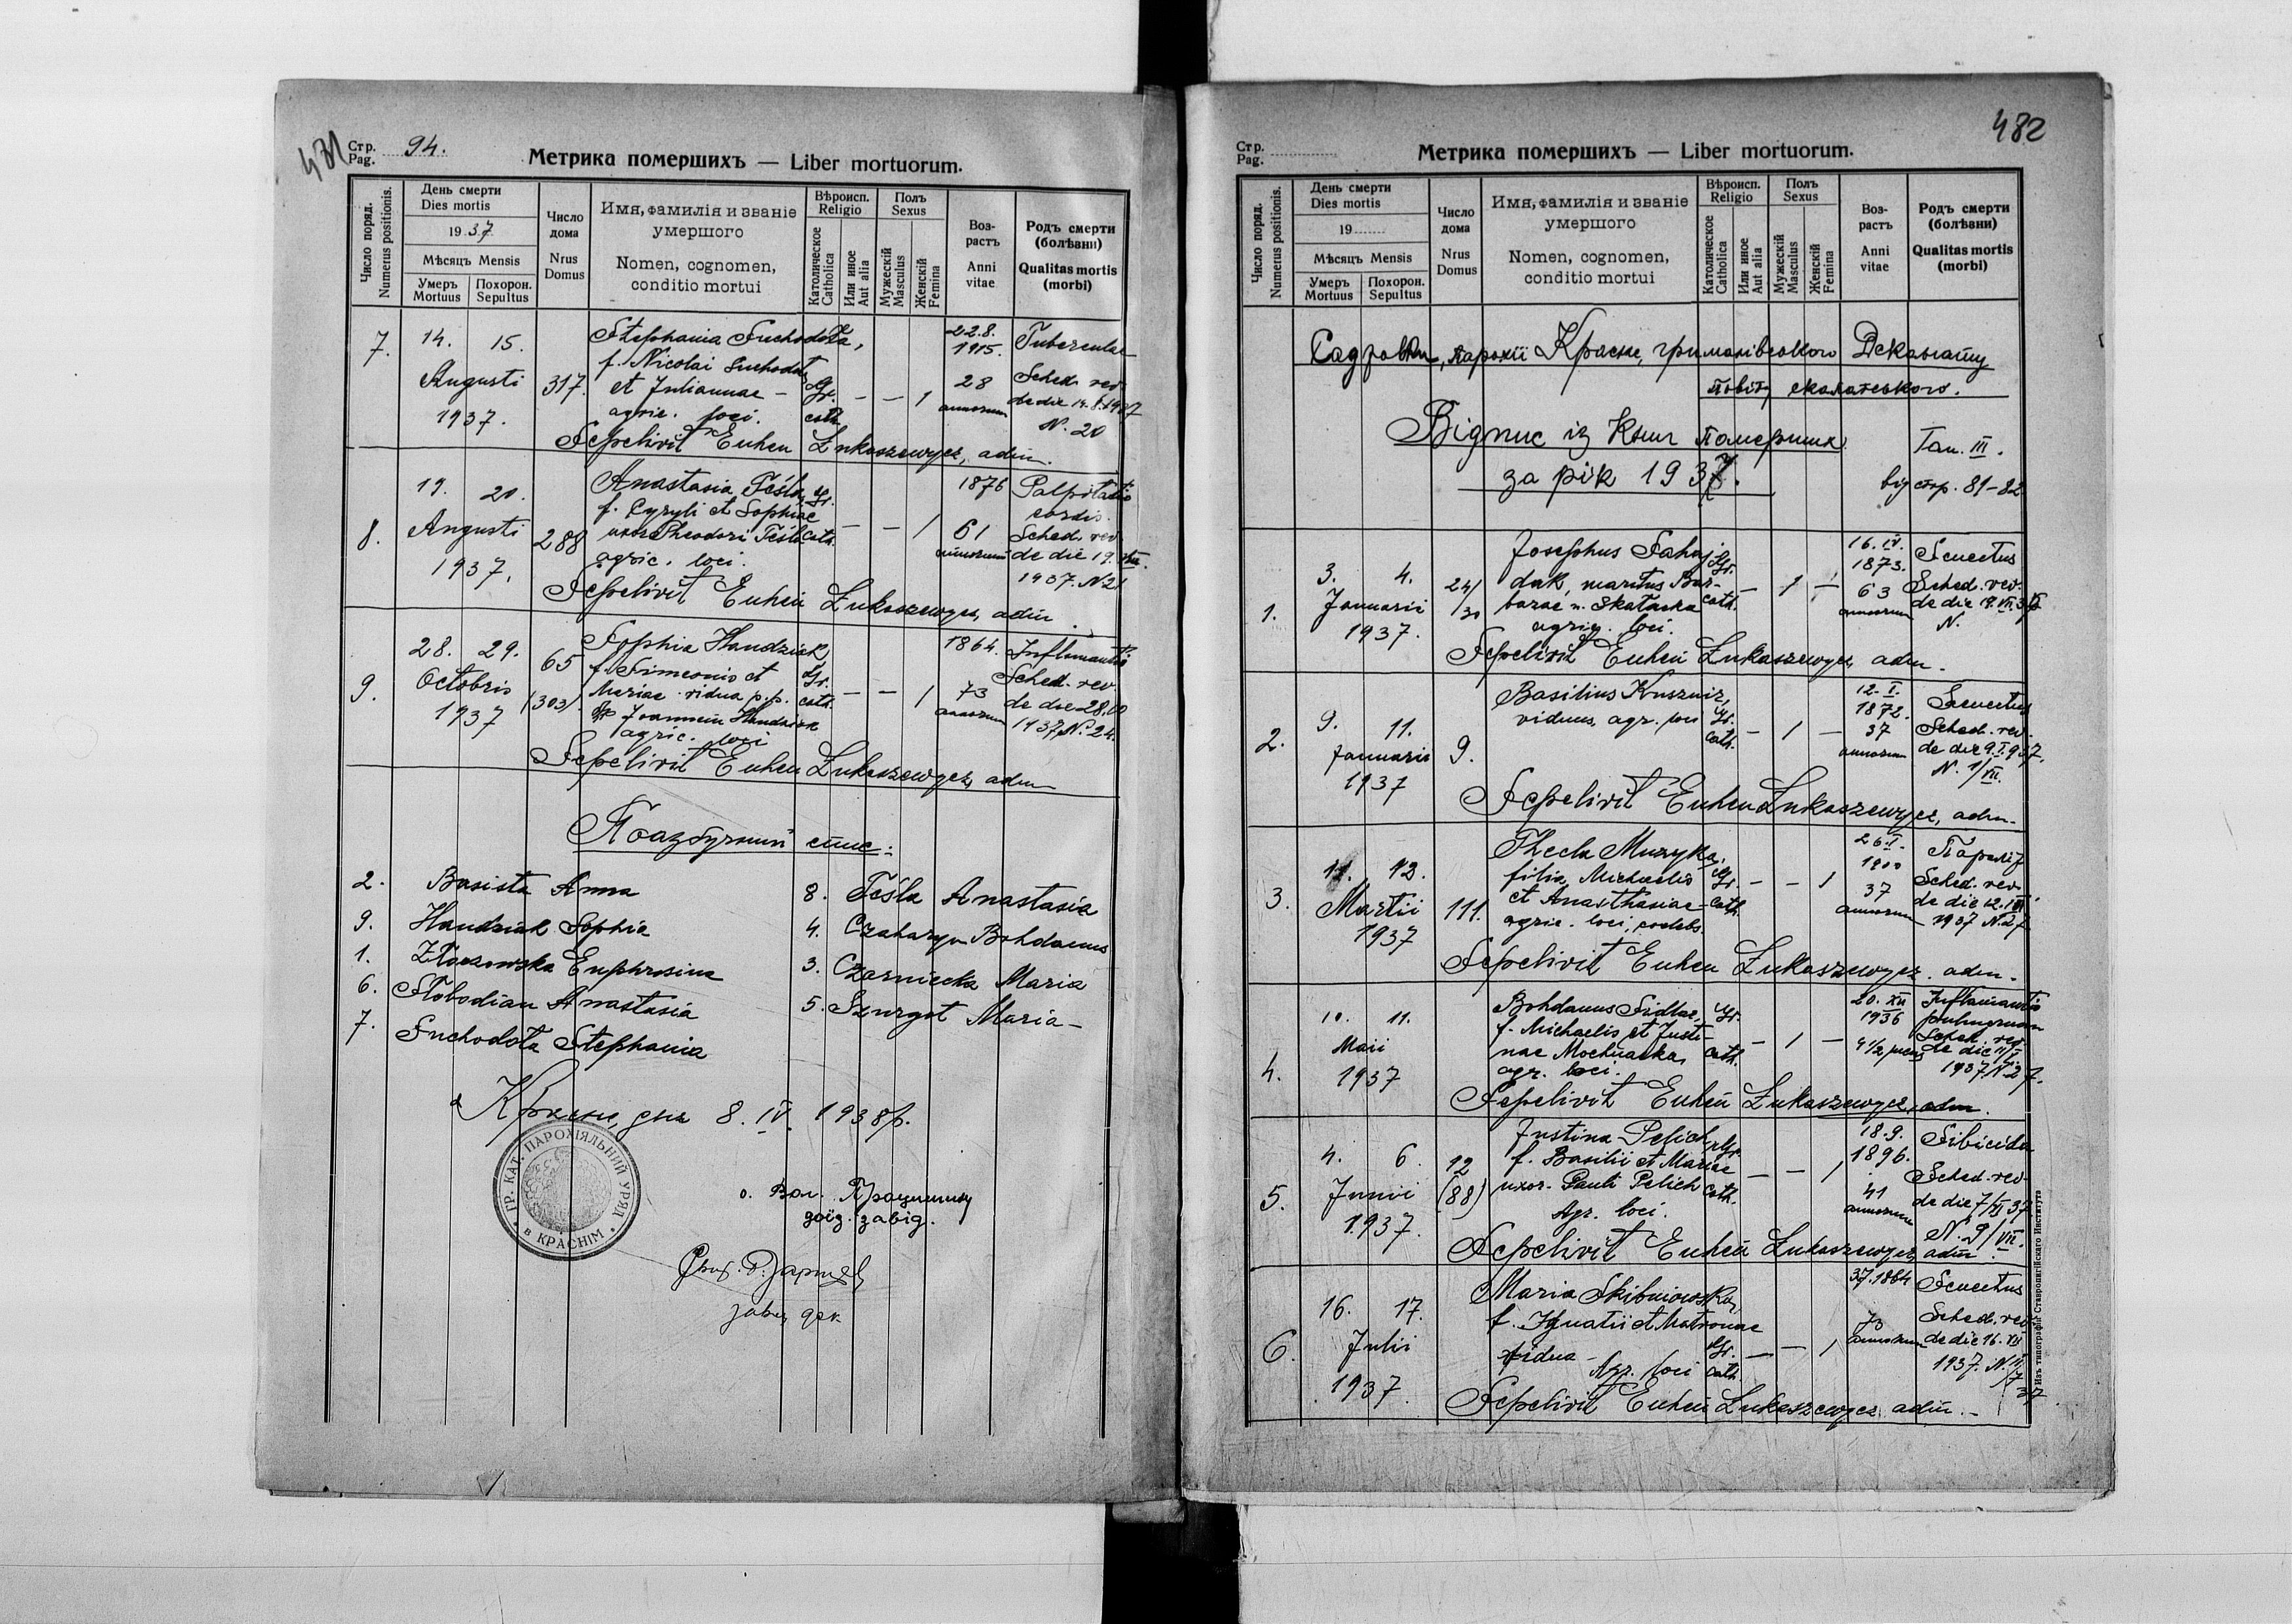 471
Стр.
Pag. 94.
Метрика помершихъ — Liber mortuorum.
Число поряд.
Numerus positionis.
День смерти
Dies mortis
1937
Мѣсяцъ Mensis
Умеръ
Mortuus
Похорон.
Sepultus
Число
дома
Nrus
Domus
Имя, фамилія и званіе
умершого
Nomen, cognomen,
conditio mortui
Вѣроисп.
Religio
Католическое
Catholica
Или иное
Aut alia
Полъ
Sexus
Мужескій
Masculus
Женскій
Femina
Воз-
растъ
Anni
vitae
Родъ смерти
(болѣзни)
Qualitas mortis
(morbi)
7. 14. 15. Augusti 1937. 317.
Stephania Suchodoła,
f. Nicolai Suchodoł
et Juliannae –
agric. loci.
Gr. cath. — — 1
22.8. 1915. 28 annorum
Sched. rev.
de die 14.8.1937
N. 20
Sepelivit Euhen Łukaszewycz, adm.
8. 19. 20. Augusti 1937. 288
Anastasia Teśla
f. Cyryli et Sophiae
uxor Theodori Teśla
agric. loci.
Gr. cath. — — 1
1876 61 annorum
Palpitatio
cordis.
Sched. rev.
de die 19.VIII.
1937. N 21
Sepelivit Euhen Łukaszewycz, adm.
9. 28. 29. Octobris 1937 65 (303).
Sophia Handziak
f. Simeonis et
Mariae vidua p.p.
Joannem Handziak
agric. loci
Gr. cath. — — 1
1864. 73 annorum
Sched. rev.
1937 N. 24.
Sepelivit Euhen Łukaszewycz, adm
Поазбучний спис:
2. Basista Anna
9. Handziak Sophia
1. Złoczowska Euphrosina
6. Słobodian Anastasia
7. Suchodoła Stephania
8. Teśla Anastasia
4. Czaharyn Bohdanus
3. Czarniecka Maria
5. Szurgot Maria –
Красне, дня 8. IV. 1938 р.
ГР. КАТ. ПАРОХІЯЛЬНИЙ УРЯД
в КРАСНІМ
о. Вол.
доїз. завід.
482
Стр.
Pag.
Метрика помершихъ — Liber mortuorum.
Число поряд.
Numerus positionis.
День смерти
Dies mortis
19
Мѣсяцъ Mensis
Умеръ
Mortuus
Похорон.
Sepultus
Число
дома
Nrus
Domus
Имя, фамилія и званіе
умершого
Nomen, cognomen,
conditio mortui
Вѣроисп.
Religio
Католическое
Catholica
Или иное
Aut alia
Полъ
Sexus
Мужескій
Masculus
Женскій
Femina
Воз-
растъ
Anni
vitae
Родъ смерти
(болѣзни)
Qualitas mortis
(morbi)
Садзовки, парохії Красне, грималівського Деканату
повіту скалатського.
Відпис із Книг померших Том. III.
за рік 1937. від стор. 81–82
1. 3. 4. Januarii 1937. 24/30
Josephus Sahaj-
dak, maritus Bar-
barae n. Skalaska
agric. loci.
Gr. cath. — 1 —
16.IV. 1873. 63 annorum
Senectus
Sched. rev.
N.
Sepelivit Euhen Łukaszewycz adm.
2. 9. 11. Januarii 1937 9.
Basilius Kuszniz,
viduus, agr. loci
Gr. cath. — 1 —
12.I. 1872. 37 annorum
Senectus
Sched. rev.
de die 9.I.937.
N. 1/VII.
Sepelivit Euhen Łukaszewycz, adm.
3. 11. 12. Martii 1937 111.
Thecla Muzyka,
filia Michaelis
et Anasthasiae
agric. loci, coelebs
Gr. cath. — — 1
26.I. 1900 37 annorum
Параліч
Sched. rev.
Sepelivit Euhen Łukaszewycz. adm.
4. 10. 11. Maii 1937
Bohdanus Sidlar,
f. Michaelis et Justi-
nae Mochnacka,
agr. loci.
Gr. cath. — 1 —
20.XII 1936 4 1/2 mens
Sepelivit Euhen Łukaszewycz, adm.
5. 4. 6. Junii 1937. 92 (88)
Justina Pelich
f. Basilii et Mariae
uxor Pauli Pelich
Agr. loci.
Gr. cath. — — 1
18.9. 1896. 41 annorum
Sched. rev.
N. 9/VII.
Sepelivit Euhen Łukaszewycz, adm.
6. 16. 17. Julii 1937.
Maria Skibniowska,
f. Ignatii et Matronae
vidua –
Agr. loci
Gr. cath. — — 1
1864 73 annorum
Senectus
Sched. rev.
de die 16.VII
1937.
Sepelivit Euhen Łukaszewycz adm. –
Изъ типографіи Ставропигійскаго Института